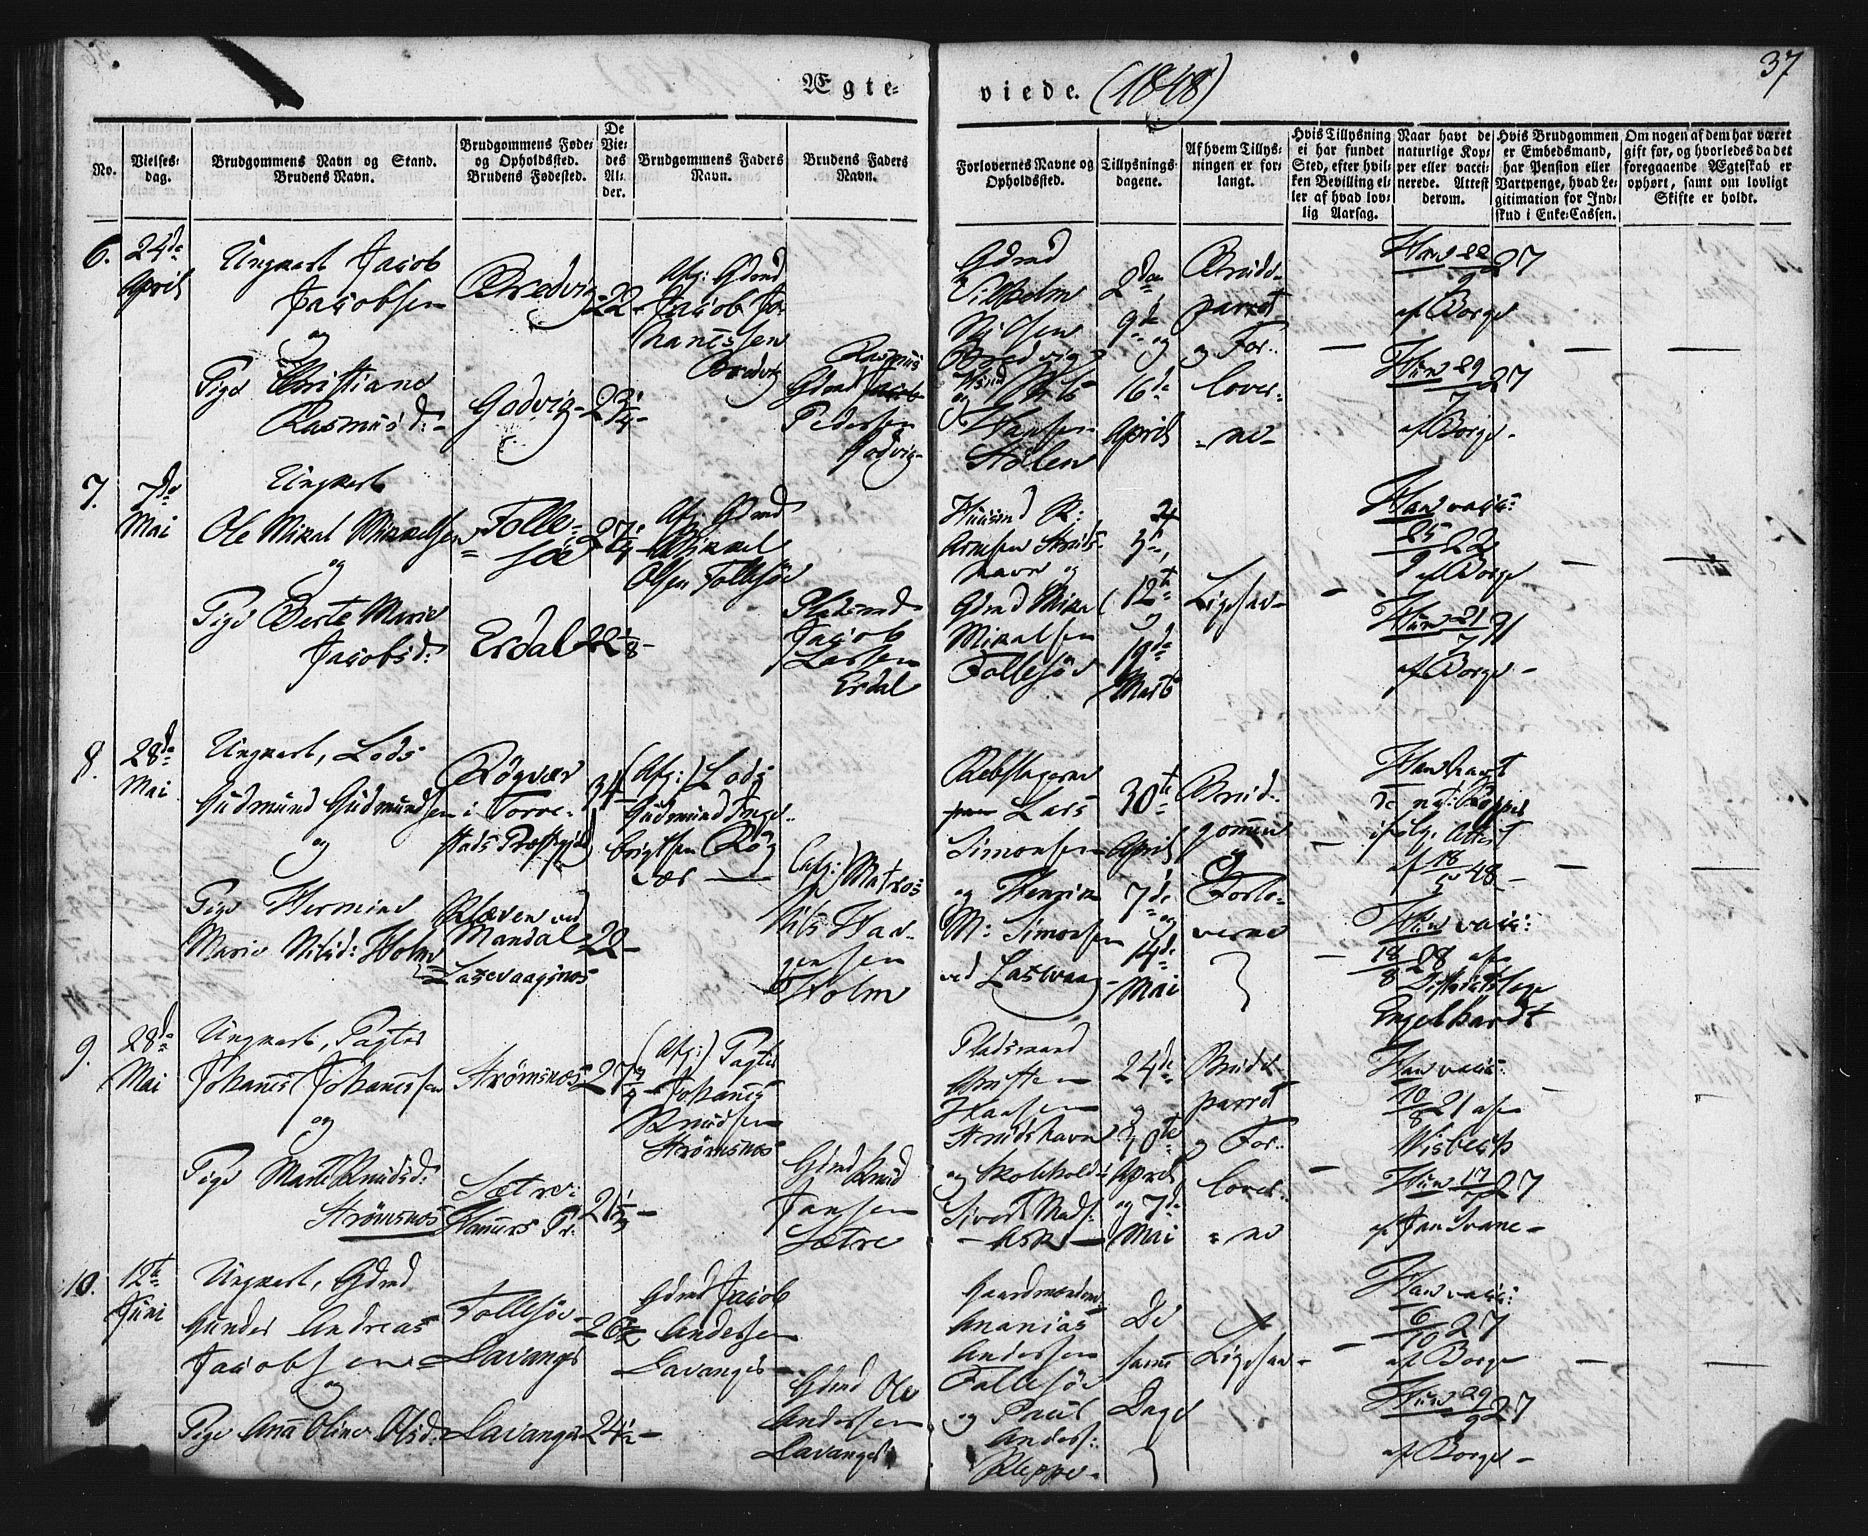 37
Ægte-
viede. (1848)
No.
Vielses-
dag.
Brudgommens Navn og Stand.
Brudens Navn.
Brudgommens Føde-
og Opholdssted.
Brudens Fødested.
De
Vie-
des
Al-
der.
Brudgommens Faders
Navn.
Brudens Faders
Navn.
Forlovernes Navne og
Opholdssted.
Tillysnings-
dagene.
Af hvem Tillys-
ningen er for-
langt.
Hvis Tillysning
ei har fundet
Sted, efter hvil-
ken Bevilling el-
ler af hvad lov-
lig Aarsag.
Naar havt de
naturlige Kop-
per eller vacci-
nerede. Attest
derom.
Hvis Brudgommen
er Embedsmand,
har Pension eller
Vartpenge, hvad Le-
gitimation for Ind-
skud i Enke-Cassen.
Om nogen af dem har været
gift før, og hvorledes da det
foregaaende Ægteskab er
ophørt, samt om lovligt
Skifte er holdt.
6.
24de
April
Ungkarl Jacob
Jacobsen
og
Pige Christiane
Rasmusd:
Bredvig
Godvig
22
23 1/4
Afg: Gdmd
Jacob Jo-
hanessen
Bredvig
Rasmus
Gdmd
Pedersen
Godvig
Gdmd
Vilhelm
Nilsen
Bredvig
og Nils
Hansen
Stølen
2den
9de og
16de
April
Brude-
parret
og For-
lover-
ne
Han 22/9 27
af Borge
Hun 29/7 27
af Borge
7.
7de
Mai
Ungkarl
Ole Mikal Mikkelsen
og
Pige Berte Marie
Jacobsd:
Follesøe
Erdal
27 1/4
22 1/8
Afg: Gdmd
Mikkel
Olsen Follesøe
Pladsmd
Jacob
Larsen
Erdal
Huusmd R:
Arnesen Struds-
havn og
Gdmd Mikal
Mikalsen
Follesøe
5te,
12te
og
19de
Marts
Ligesaa
Han vacc:
25/9 22
af Borge
Hun 21/7 31
af Borge
8.
28de
Mai
Ungkarl, Lods
Gudmund Gudmundsen
og
Pige Hermine
Marie Nilsd: Holm
Røgvær
i Torve-
stads Præstgjeld
Kleven ved
Mandal
Laxevaagsnes
34
22
(Afg:) Lods
Gudmund Inge-
brigtsen Røg
vær
(afg:) Matros
Nils Haa-
gensen
Holm
Rebslagerne
Lars
Simonsen
og Henrik
M: Simonsen
ved Laxevaag
30te
April
7de
og
14de
Mai
Brud-
gommen
og
Forlo-
verne
Han havt
de nat: Kopper
if lg. Attest
af 18/5 48
Hun vacc:
18/8 28 af
Distriktslæge
Engelhardt
9.
28de
Mai
Ungkarl, Pagter
Johanes Johanessen
og
Pige Marte Knudsd:
Strømsnes
Strømsnes
Sætre
Hammers Pr:
27 3/4
21 1/3
(Afg:) Pagter
Johanes
Knudsen
Strømsnes
Gdmd Knud
Jansen
Sætre
Pladsmand
Christen
Hansen
Strudshavn
og Skoleholder
Sivert Mads:
Ask
24de
og
30te
April
og 7de
Mai
Brude-
parret
og For-
lover-
ne
Han vacc:
10/8 21 af
Wisbech
Hun 17/7 27
af Jan Svane
10.
12te
Juni
Ungkarl, Gdmd
Gunder Andreas
Jacobsen
og
Pige Ana Oline Olsd:
Follesøe
Davanger
Davanger
26 1/2
24 1/2
Gdmd Jacob
Andersen
Davanger
Gdmd Ole
Andersen
Davanger
Gaardmændene
Ananias
Andersen
Follesøe
og Paul
Anders:
Kleppe
De
samme
Dage
Ligesaa
Han vacc:
6/10 27
af Borge
Hun 29/9 27
af Borge